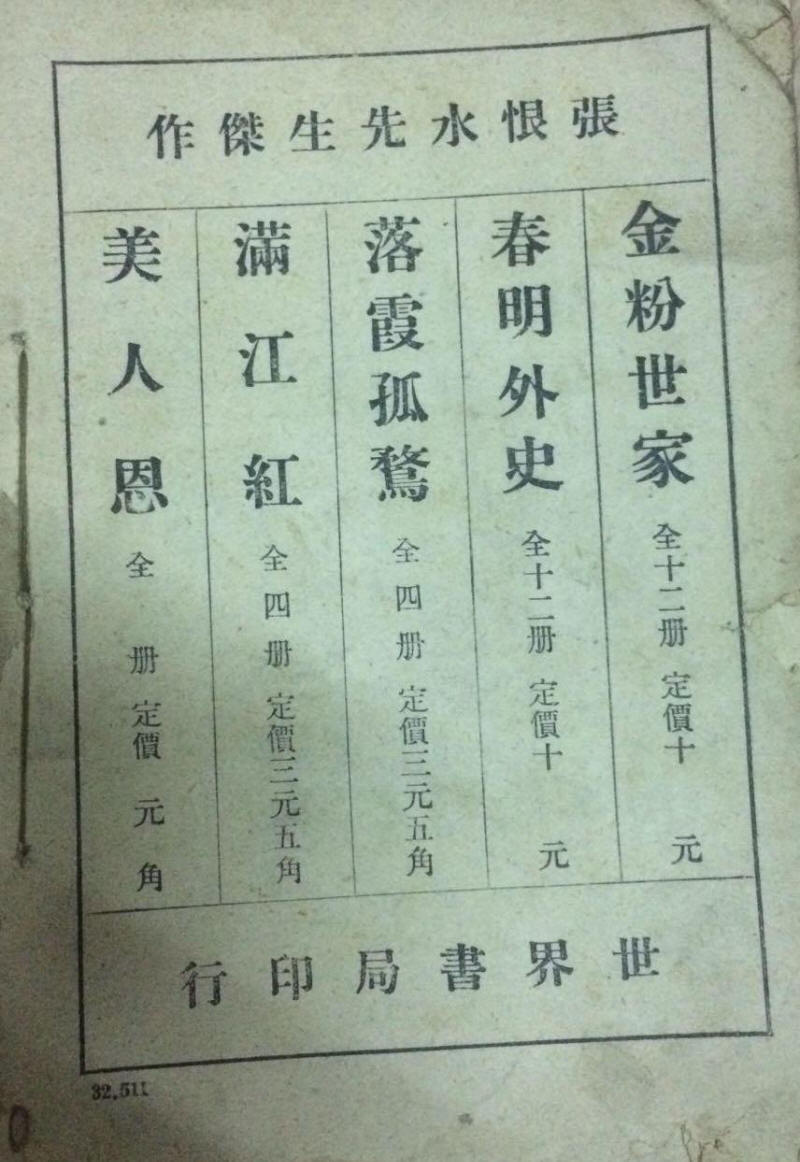 張恨水先生傑作
金粉世家 全十二册 定價十 元
春明外史 全十二册 定價十 元
落霞孤鶩 全四册 定價三元五角
滿江紅 全四册 定價三元五角
美人恩 全 册 定價 元 角
世界書局印行
32.511